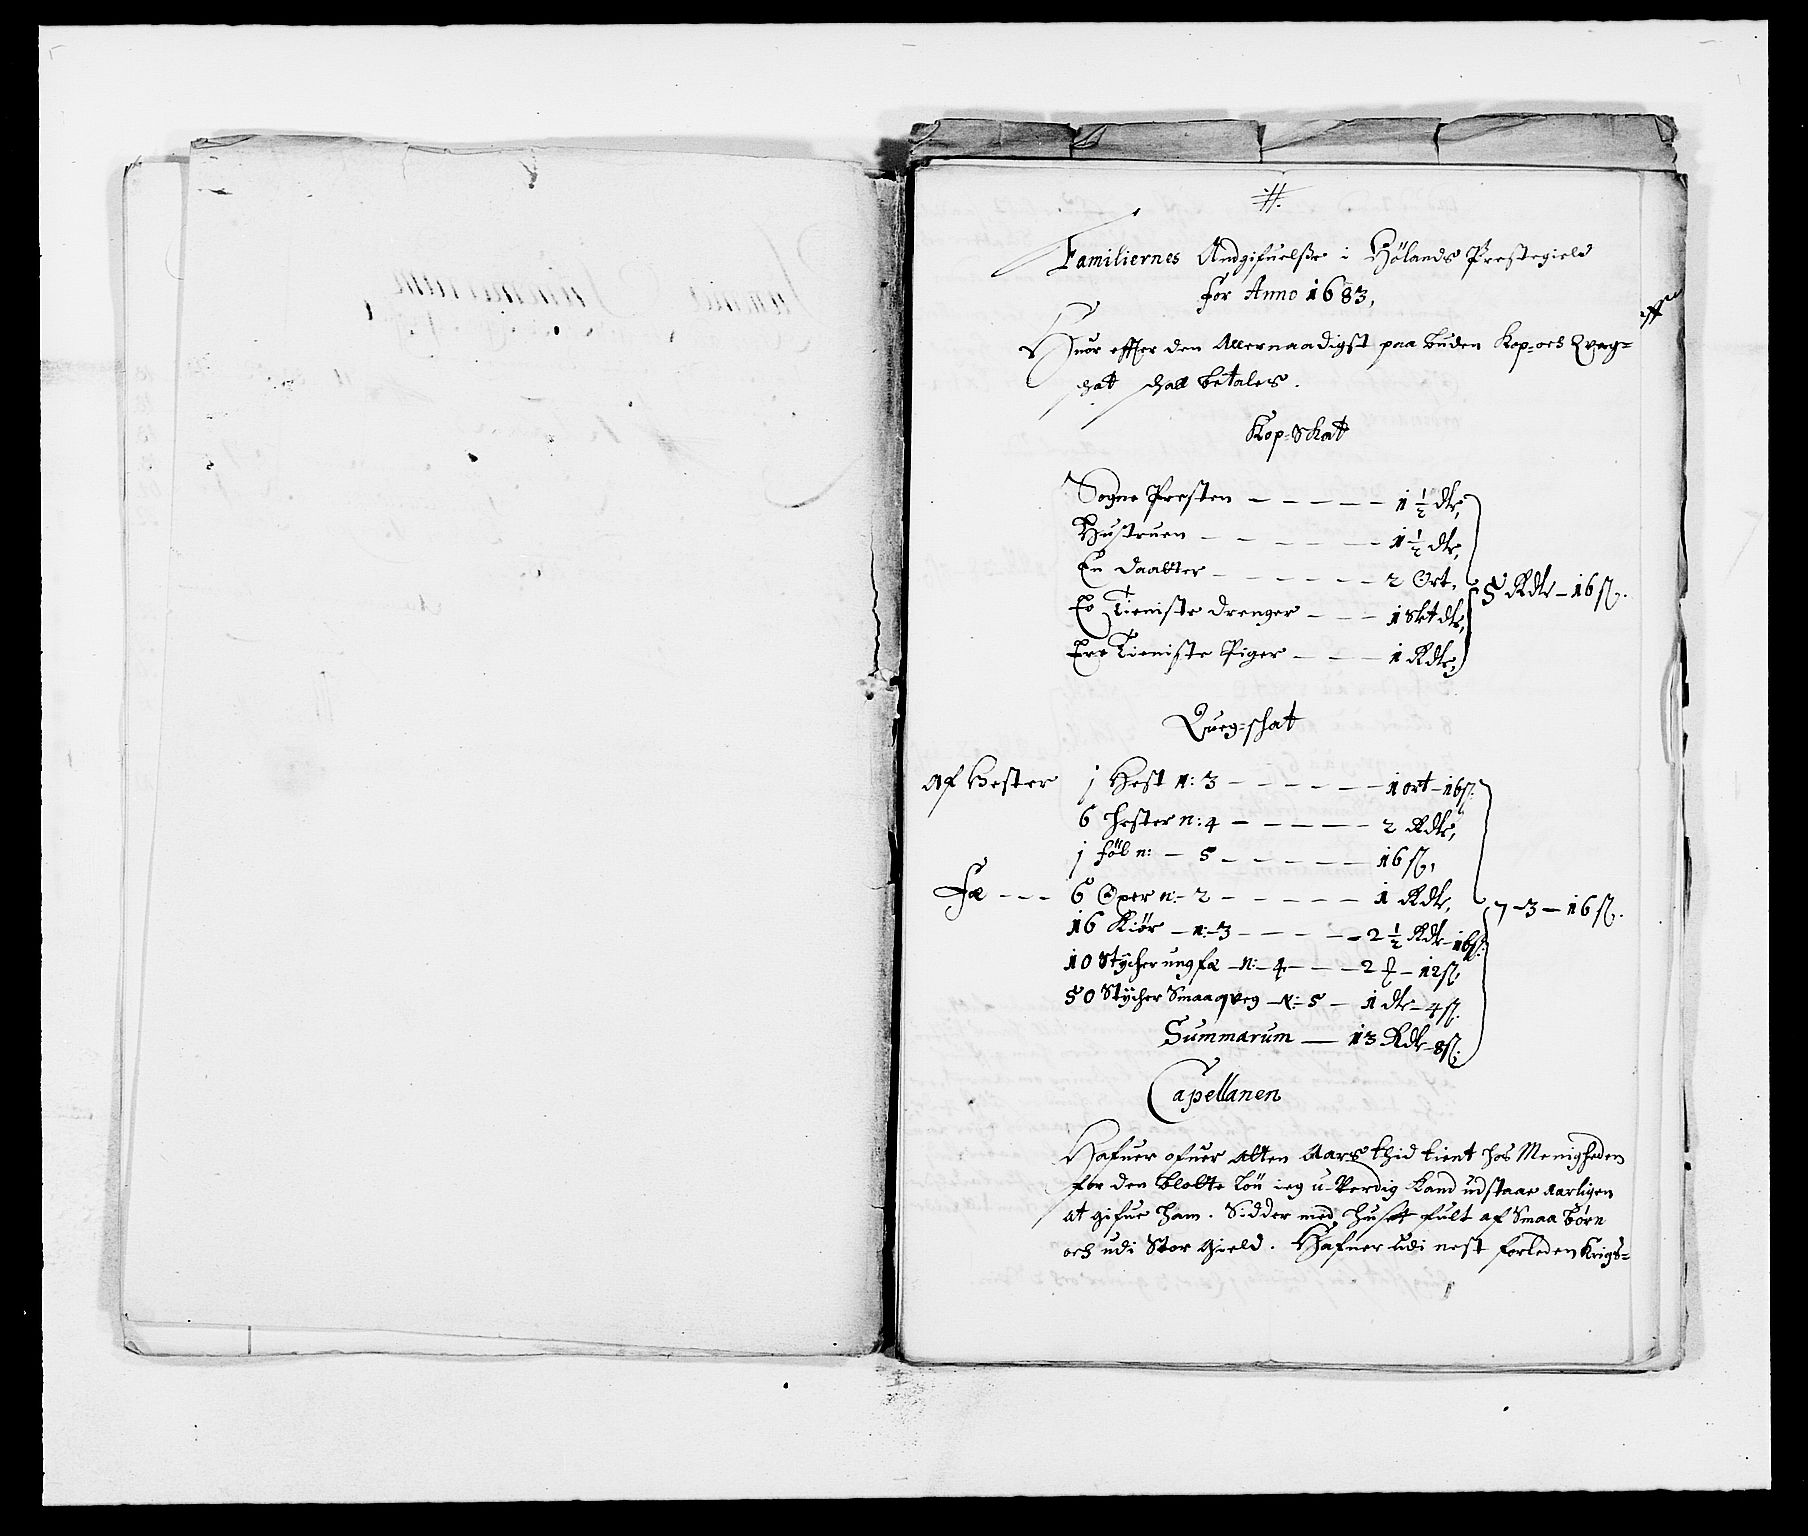 Familiernes Andgifuelse i Hölands Prestegield
for Anno 1683,
Huor effter den Allernaadigst paa buden Kop- och Qveg-
skat skall betales.
Kop-Skat
Sogne Presten - - - - - 1 ½ dlr,
Hustruen - - - - - - 1 ½ dlr,
En Daatter - - - - - - 2 Ort,
To Tieniste drenger - - - 1 Slet dlr,
Tre Tieniste Piger - - - 1 Rdlr,
5 Rdlr - 16 ß.
Queg-skat
Af Hester j Hest n: 3 - - - - - - 1 ort - 16 ß.
6 Hester n: 4 - - - - - 2 Rdlr,
j föl n: - 5 - - - - - 16 ß,
Fæ - - - 6 Oxer n: - 2 - - - - - 1 Rdlr,
16 Kiör - n: - 3 - - - - - 2 ½ Rdlr - 16 ß.
10 Stycher ung fæ - N: - 4 - - - 2 - 12 ß
50 Stycher Smaaqveg - N: - 5 - 1 dlr - 4 ß.
7 - 3 - 16 ß.
Summarum — 13 Rdlr - 8 ß.
Capellanen
Hafuer ofuer atten Aars thid tient hos Menigheden
for den blotte lön ieg u-Verdig kand udstaae aarligen
at gifue ham. Sidder med huset fult af Smaa börn
och udi Stor Gield. Hafuer udi nest forleden Krigs-